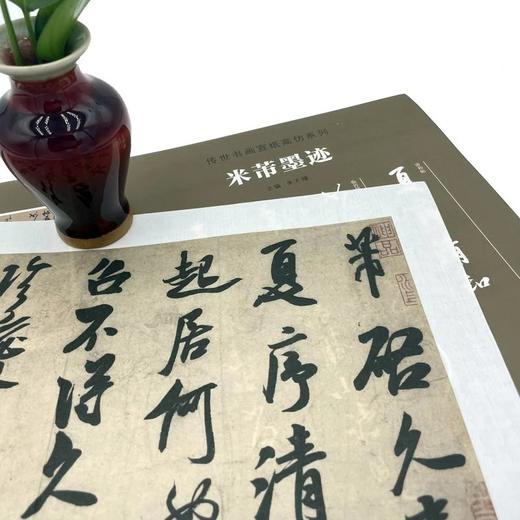 传世书画宣纸高仿系列
米芾墨迹
芾啓久
夏序清
起居何
召不得久
珍愛